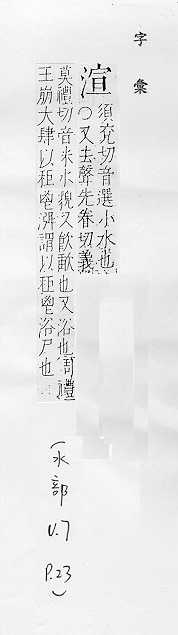 字彙
渲 須兗切音選小水也
〇又去聲先眷切義
莫禮切音米水貌又飲歃也又浴也周禮
王崩大肆以秬鬯渳謂以秬鬯浴尸也
(水部
V.7
P.23)